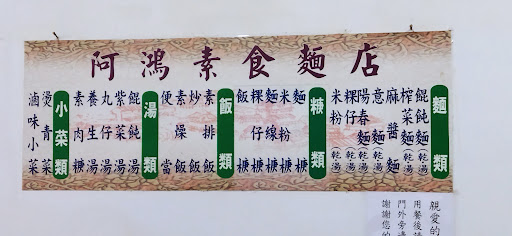 阿鴻素食麵店
麵類
餛飩麵(乾湯)
榨菜麵(乾湯)
麻醬麵
意麵(乾湯)
陽春麵(乾湯)
粿仔(乾湯)
米粉(乾湯)
焿類
麵焿
米粉焿
麵線焿
粿仔焿
飯焿
飯類
素排飯
炒飯
素燥飯
便當
湯類
餛飩湯
紫菜湯
丸仔湯
養生湯
素肉焿
小菜類
燙青菜
滷味小菜
親愛的
用餐後
門外旁
謝謝您的